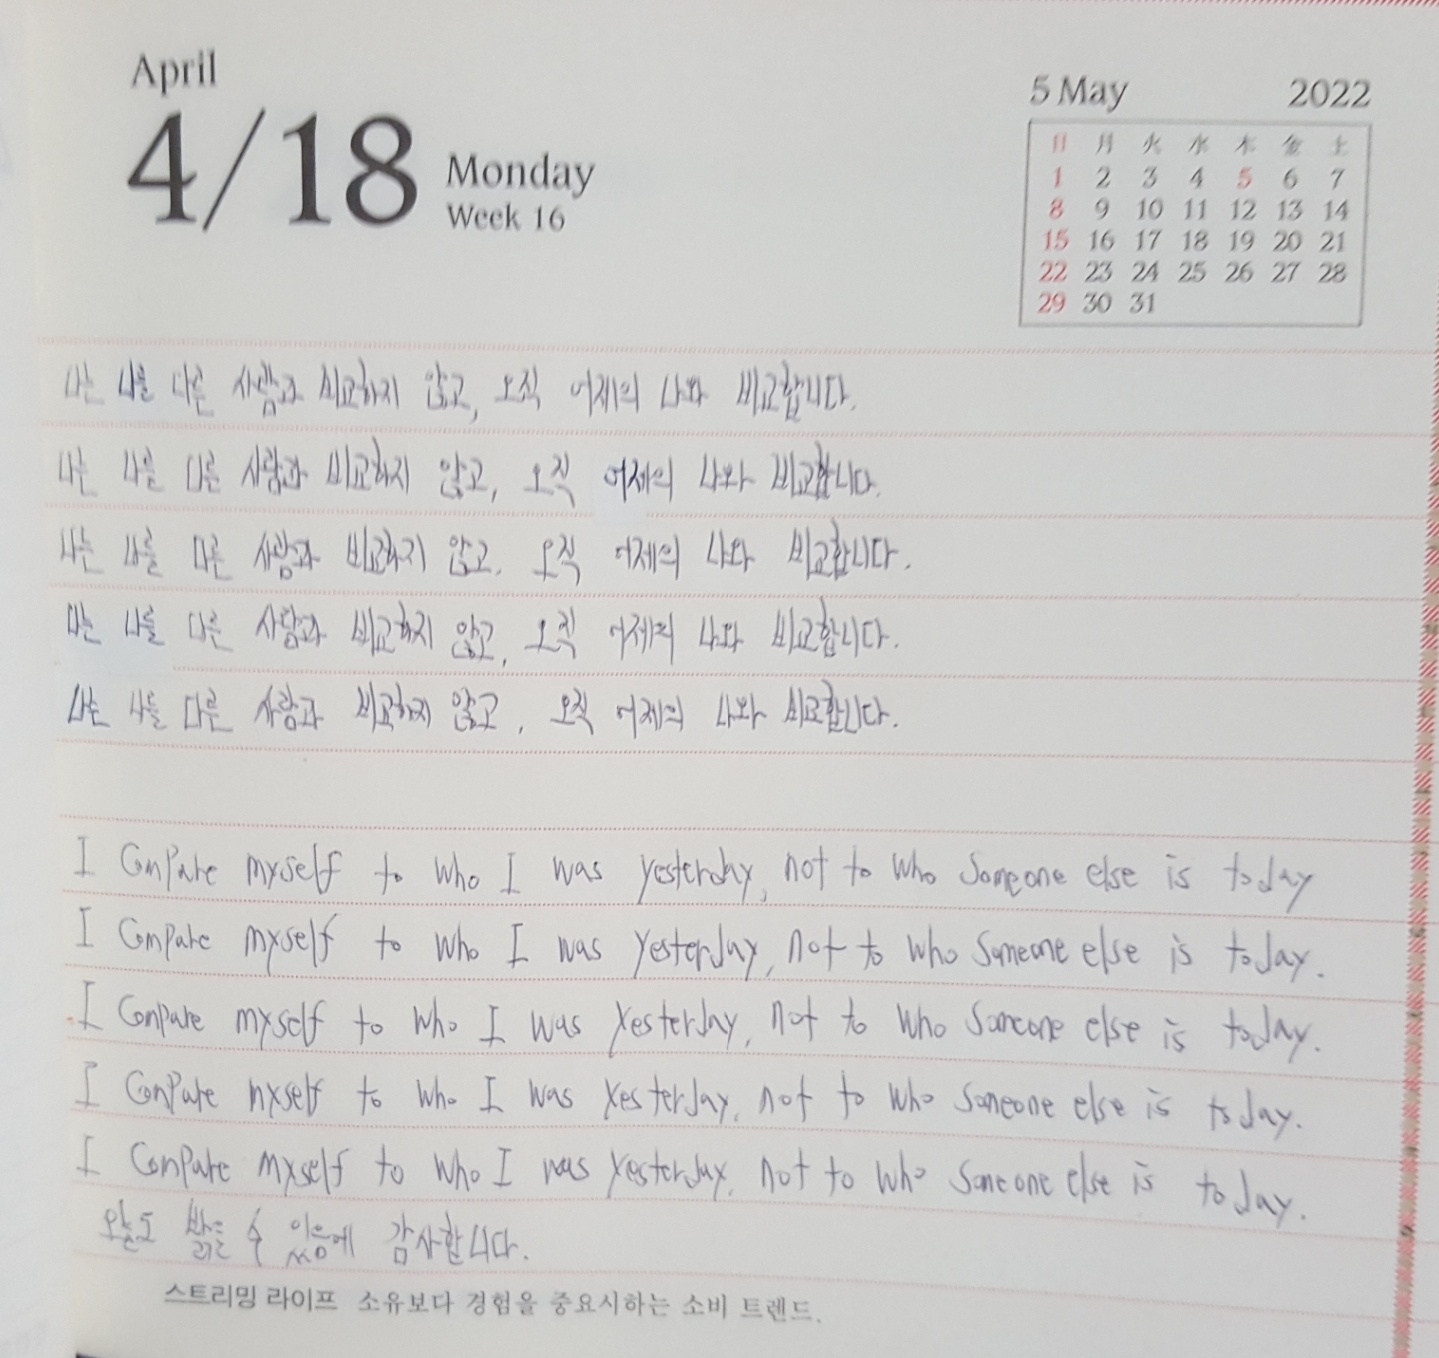 April
4/18 Monday
Week 16
5 May 2022
日 月 火 水 木 金 土
1 2 3 4 5 6 7
8 9 10 11 12 13 14
15 16 17 18 19 20 21
22 23 24 25 26 27 28
29 30 31
나는 나를 다른 사람과 비교하지 않고, 오직 어제의 나와 비교합니다.
나는 나를 다른 사람과 비교하지 않고, 오직 어제의 나와 비교합니다.
나는 나를 다른 사람과 비교하지 않고, 오직 어제의 나와 비교합니다.
나는 나를 다른 사람과 비교하지 않고, 오직 어제의 나와 비교합니다.
나는 나를 다른 사람과 비교하지 않고, 오직 어제의 나와 비교합니다.
I Compare myself to who I was yesterday, not to who someone else is today
I Compare myself to who I was yesterday, not to who someone else is today.
I Compare myself to who I was yesterday, not to who someone else is today.
I Compare myself to who I was yesterday, not to who someone else is today.
I Compare myself to who I was yesterday, not to who someone else is today.
오늘도 수 있음에 감사합니다.
스트리밍 라이프 소유보다 경험을 중요시하는 소비 트렌드.